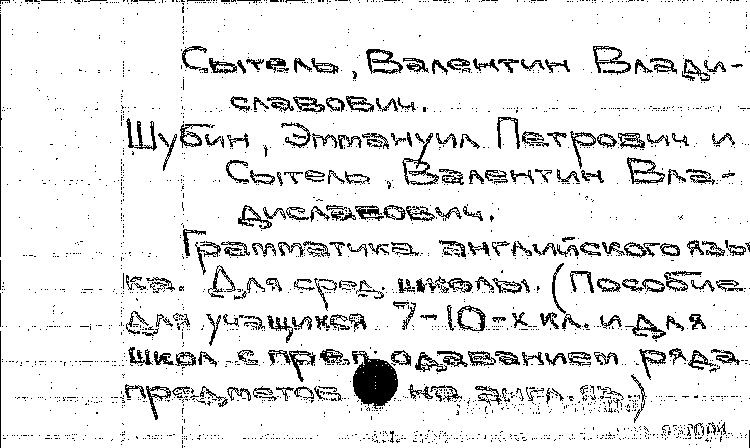 Сытель, Валентин Влади-
славович.
Шубин, Эммануил Петрович и
Сытель, Валентин Вла-
диславович.
Грамматика английского язы-
ка. Для сред. школы. (Пособие
для учащихся 7-10-х кл. и для
школ с преп. одаванием ряда
предметов на англ. яз.)